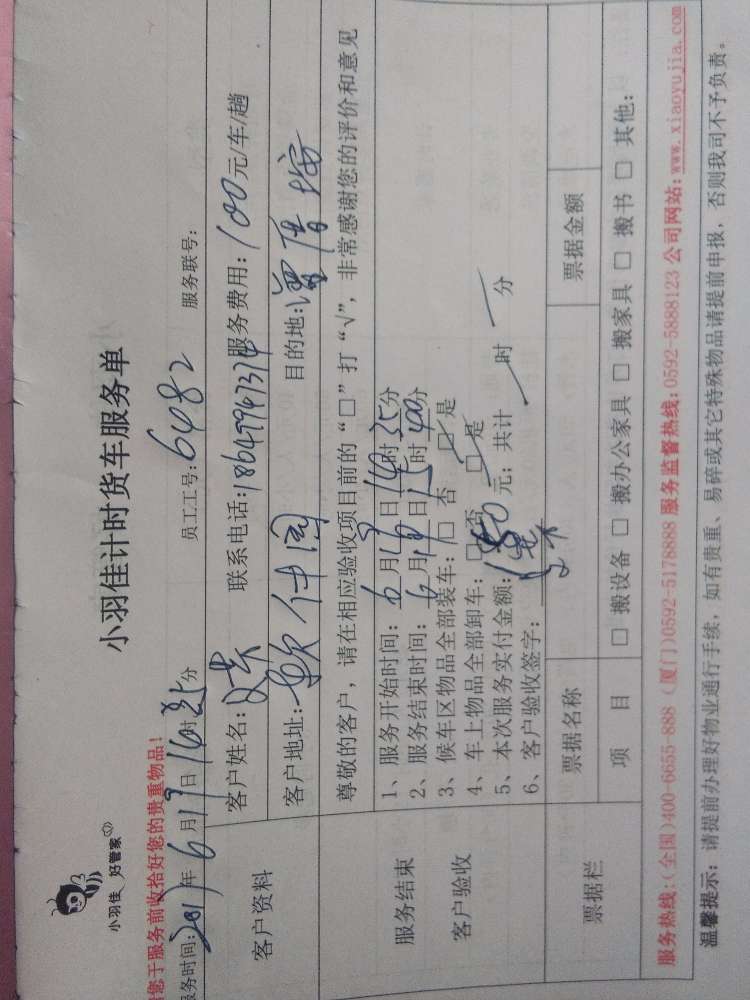 小羽佳 好管家
小羽佳计时货车服务单
您于服务前收拾好您的贵重物品!
务时间: 2017年6月19日14时25分 员工工号: 6482 服务联号:
客户资料
客户姓名: 联系电话: 服务费用: 100元/车/趟
客户地址: 软件园 目的地:
尊敬的客户,请在相应验收项目前的“□”打“√”,非常感谢您的评价和意见
服务结束
客户验收
1、服务开始时间: 6月19日14时25分
2、服务结束时间: 6月19日15时00分
3、候车区物品全部装车: □否 □是
4、车上物品全部卸车: □否 □是
5、本次服务实付金额: 元; 共计 时 分
6、客户验收签字:
票据栏
票据名称 票据金额
项 目 □ 搬设备 □ 搬办公家具 □ 搬家具 □ 搬书 □ 其他:
服务热线:(全国)400-6655-888 (厦门)0592-5178888 服务监督热线:0592-5888123 公司网站:www.xiaoyujia.com
温馨提示: 请提前办理好物业通行手续, 如有贵重、易碎或其它特殊物品请提前申报, 否则我司不予负责。